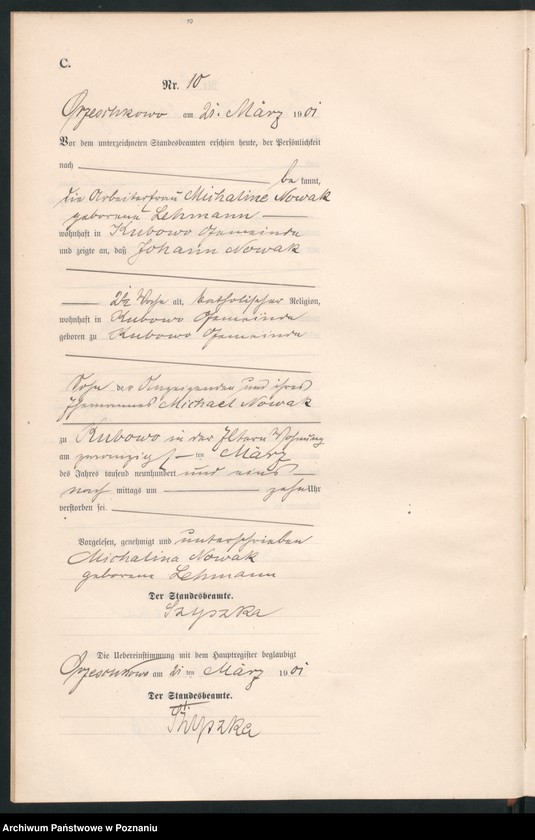 C.
Nr. 10
Orzeschkowo am 21. März 1901
Vor dem unterzeichneten Standesbeamten erschien heute, der Persönlichkeit
nach be kannt,
die Arbeiterfrau Michaline Nowak
geborene Lehmann
wohnhaft in Kubowo Gemeinde
und zeigte an, daß Johann Nowak
alt, katholischer Religion,
wohnhaft in Kubowo Gemeinde
geboren zu Kubowo Gemeinde
Sohn der Anzeigenden und ihres
Ehemannes Michael Nowak
zu Kubowo in der Eltern Wohnung
am zwanzig ten März
des Jahres tausend neunhundert und eins
nach mittags um zehn Uhr
verstorben sei.
Vorgelesen, genehmigt und unterschrieben
Michalina Nowak
geborene Lehmann
Der Standesbeamte.
Szyszka
Die Uebereinstimmung mit dem Hauptregister beglaubigt
Orzeschkowo am 21 ten März 1901
Der Standesbeamte.
Szyszka
Archiwum Państwowe w Poznaniu